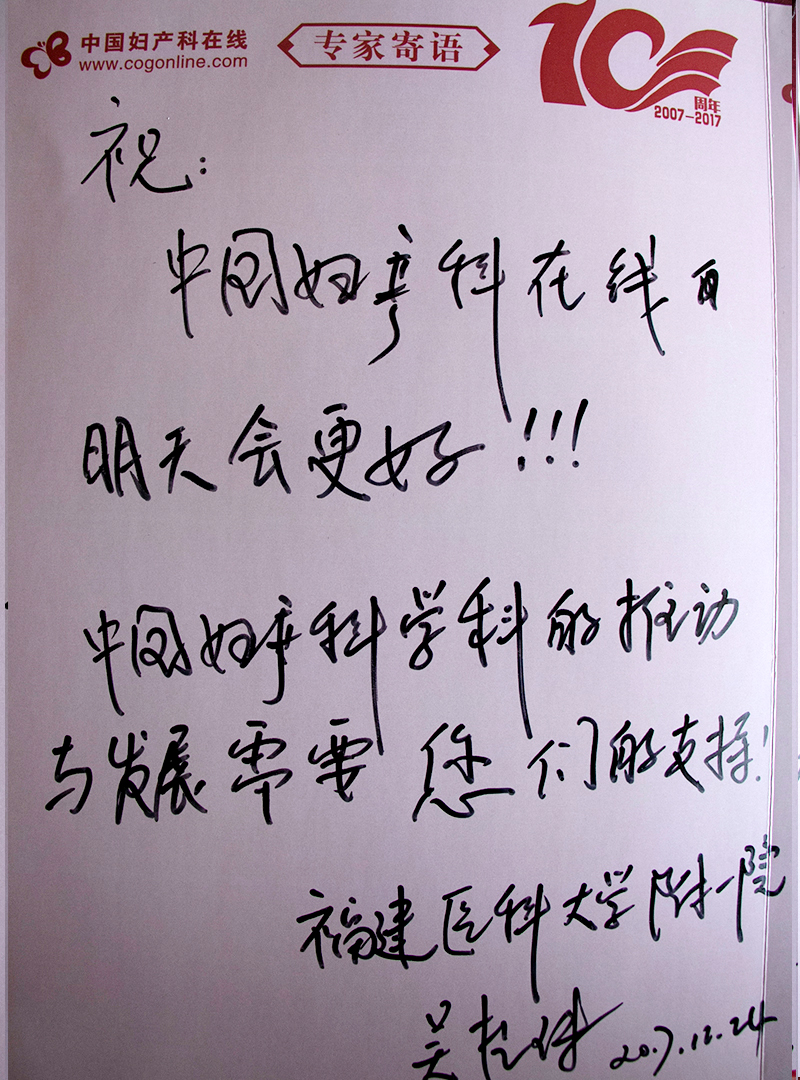 中国妇产科在线
www.cogonline.com
专家寄语
10
周年
2007-2017
祝:
中国妇产科在线
明天会更好!!!
中国妇产科学科的推动
与发展需要您们的支持!
福建医科大学附一院
吴
2017.12.24